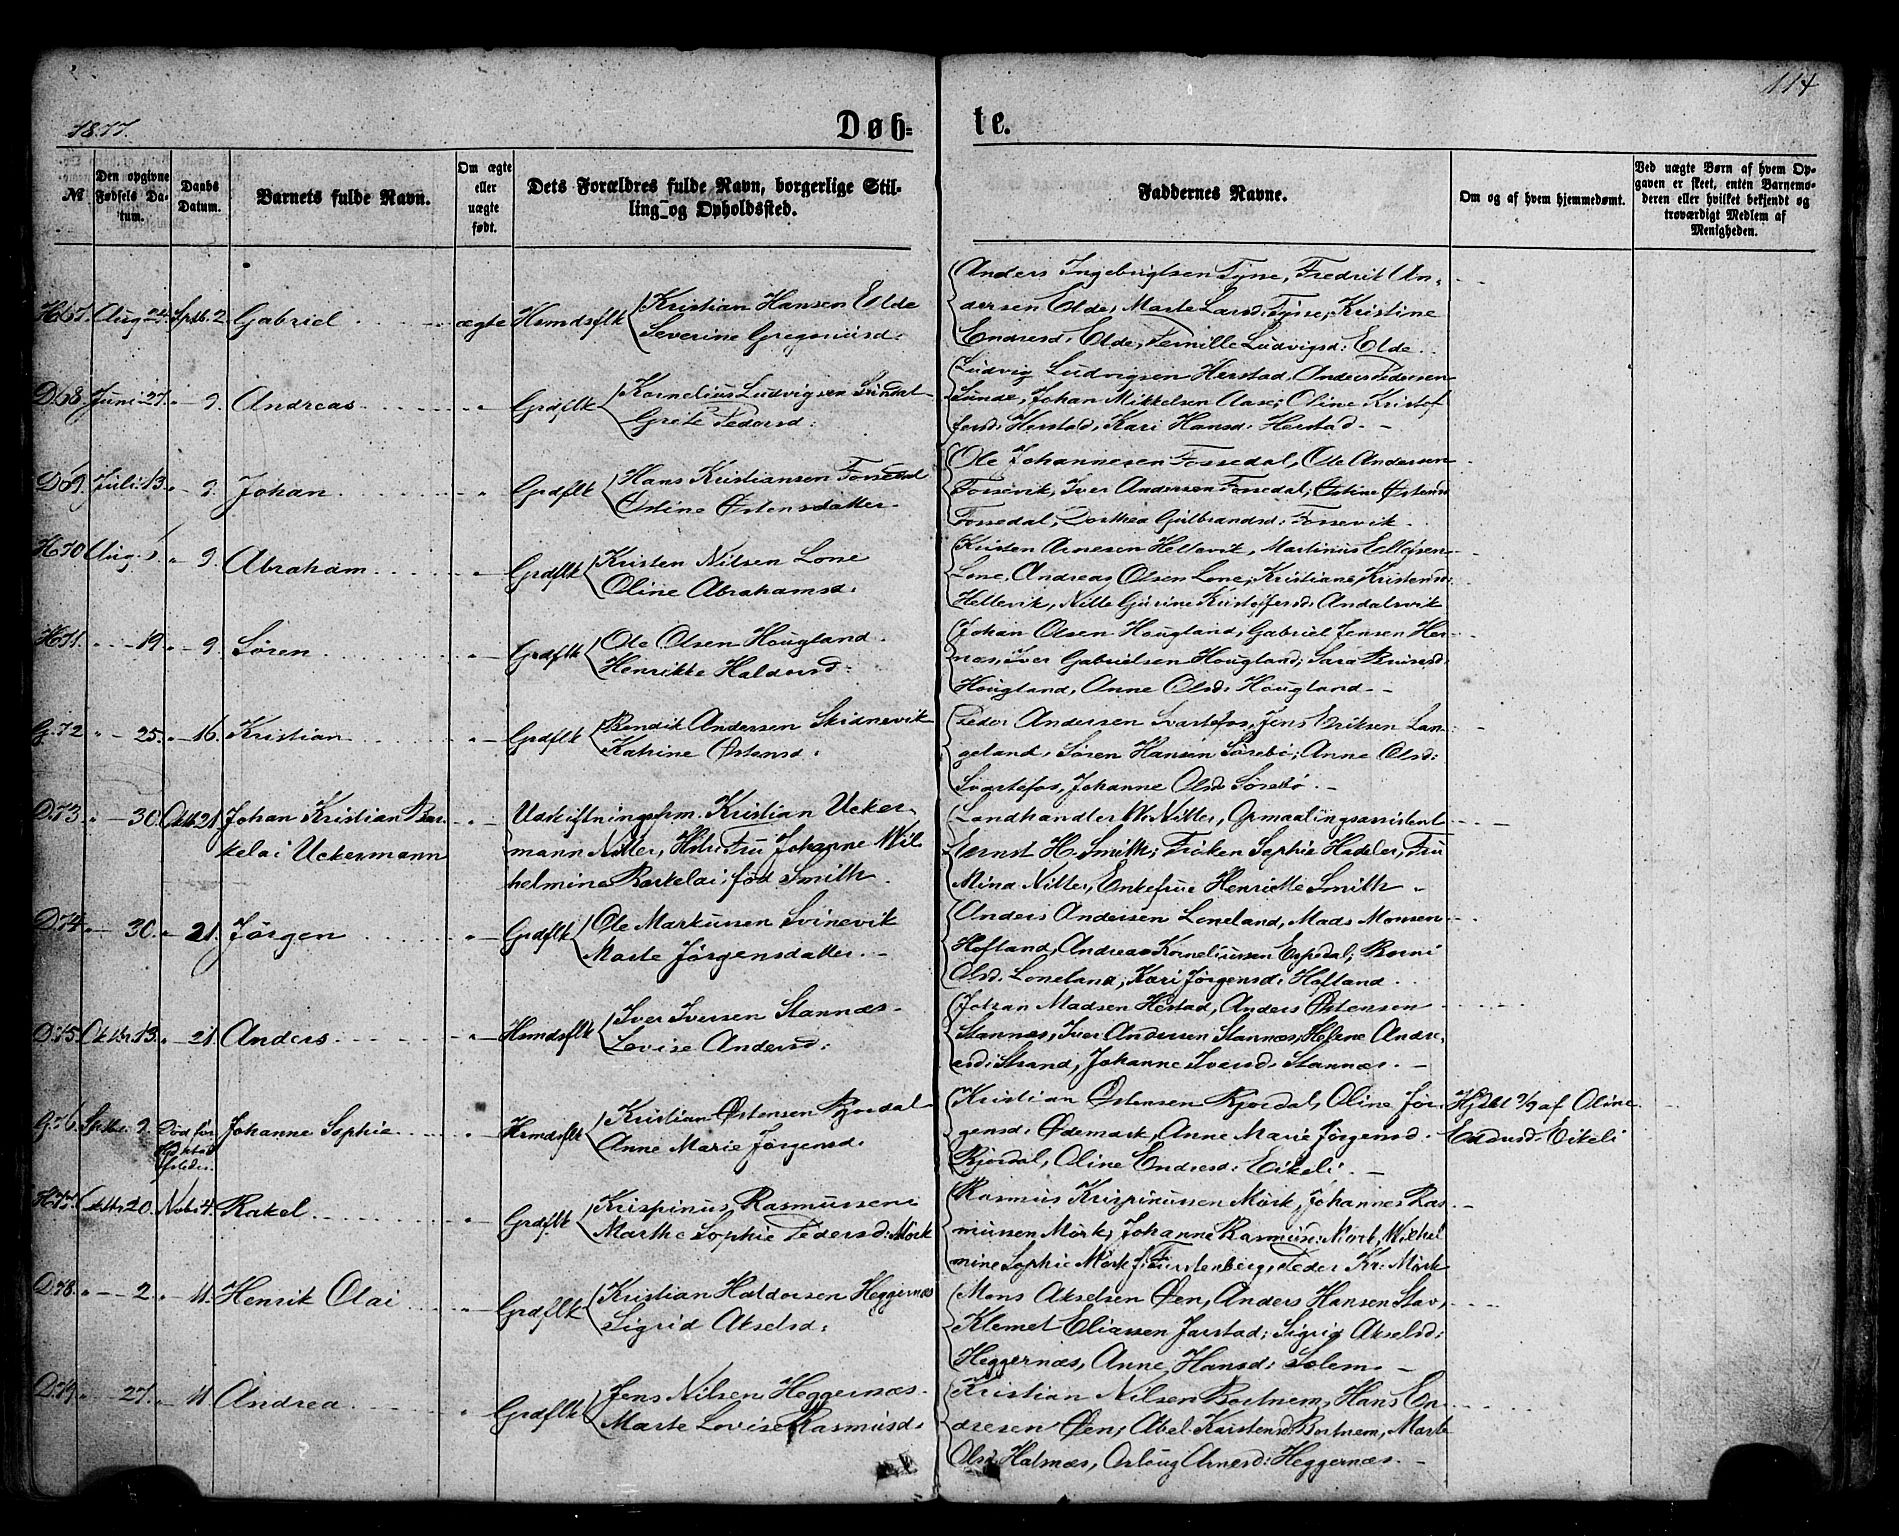 114
1877.
Døb=
te.
№
Den opgivne Fødsels Da-tum.
Daabs Datum.
Barnets fulde Navn.
Om ægte eller uægte født.
Dets Forældres fulde Navn, borgerlige Stil-
ling og Opholdssted.
Faddernes Navne.
Om og af hvem hjemmedømt.
Ved uægte Børn af hvem Op-
gaven er skeet, enten Barnemo-
deren eller hvilket bekjendt og
troværdigt Medlem af
Menigheden.
H.67. Aug 24. Sptb. 2. Gabriel ægte Hsmdsflk Kristian Hansen Elde
Severine Gregoriusd:
Anders Ingebrigtsen Tyse, Fredrik An-
dersen Elde, Marte Larsd: Tyse, Kristine
Endresd: Elde, Pernille Ludvigsd: Elde.
D.68. Juni 27. " 9. Andreas " Grdflk Kornelius Ludvigsen Sandal
Grete Pedersd:
Ludvig Ludvigsen Herstad, Anders Pedersen
Sande, Johan Mikkelsen Aase, Oline Kristof
fersd: Herstad, Kari Hansd: Herstad.
D.69. Juli 13. " 9. Johan " Grdflk Hans Kristiansen Fossedal
Ostine Østensdatter
Ole Johannesen Fossedal, Ole Andersen
Fossevik, Iver Andersen Fossedal, Ostine Østensd
Fossedal, Dorthea Gulbrandsd: Fossevik.
H.70 Aug. 1 " 9. Abraham " Grdflk Kristen Nilsen Lone
Oline Abrahamsd:
Kristen Arnesen Hellevik, Martinus
Lone, Andreas Olsen Lone, Kristiane Kristensd:
Hellevik, Nille Gurine Kristofersd: Andalsvik
H.71. " 19. " 9. Søren " Grdflk Ole Olsen Hougland
Henrikke Haldorsd:
Johan Olsen Hougland, Gabriel Jensen Her-
næs, Iver Gabrielsen Hougland, Sara
Hougland, Anne Olsd: Hougland.
G.72 " 25. " 16. Kristian " Grdflk Bendik Andersen Skidnevik
Katrine Østensd:
Peder Andersen Svartefos, Jens Eriksen Lan-
geland, Søren Hansen Sørebø, Anne Olsd:
Svartefos, Johanne Olsd. Sørebø.
D.73 " 30. Oktb 21. Johan Kristian Bar-
kelai Uckermann
" Udskiftningsfm. Kristian Ucker-
mann Nitter, Hstr Fru Johanne Wil
helmine Barkelai, fød Smith
Landhandler W. Nitter, Opmaalingsassistent
Ernst H. Smith; Frøken Sophie Hadeler, Fru
Mina Nitter, Enkefrue Henriette Smith
D.74. " 30. " 21. Jørgen " Grdflk Ole Markussen Svinevik
Marte Jørgensdatter.
Anders Andersen Loneland, Mads Monsen
Hofland, Andreas Korneliussen Espedal,
Olsd: Loneland, Kari Jørgensd: Hofland
D.75. Oktbr. 13. " 21. Anders " Hsmdsflk Iver Iversen Stannæs
Lovise Andersd:
Johan Madsen Hestad, Anders Østensen
Stannæs, Iver Andersen Stannæs, Helene Andre-
Strand, Johanne Iversd: Stannæs.
G.76. Sptbr. 2. Død før
Johanne Sophie Hsmdsflk Kristian Østensen Rjordal
Anne Marie Jørgensd.
Kristian Østensen Rjordal, Oline Jør-
gensd: Ødemark, Anne Marie Jørgensd.
Rjordal, Oline Endresd: Eikeli.
Hjdbt af Oline
Endresd. Eikeli
H.77. Oktbr 20. Nvbr 4. Rakel " Grdflk Krispinus Rasmussen
Marthe Sophie Pedersd: Mørk
Rasmus Krispinussen Mørk, Johannes Ras-
mussen Mørk, Johanne Rasmusd: Mørk, Wilhel
mine Sophie Mørk f. Fürstenberg, Peder Kr. Mørk
D.78. " 2. " 11. Henrik Olai " Grdflk Kristian Haldorsen Heggernæs
Sigrid Akselsd:
Mons Akselsen Øen, Anders Hansen Stav,
Klemet Eliassen Jarstad; Sigrid Akselsd:
Heggernæs, Anne Hansd: Solem.
D.79. " 27. " 11. Andrea " Grdflk Jens Nilsen Heggernæs
Marte Lovise Rasmusd:
Kristian Nilsen Bortnem, Hans En-
dresen Øen, Abel Karstensd: Bortnem, Marte
Olsd: Halsnæs, Arnesd: Heggernæs.